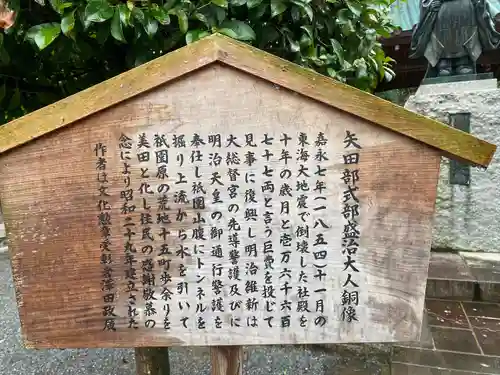 矢田部式部盛治大人銅像
嘉永七年(一八五四)十一月の
東海大地震で倒壊した社殿を
十年の歳月と壱万六千六百
七十七両と言う巨費を投じて
見事に復興し明治維新は
大総督宮の先導警護及びに
明治天皇の御通行警護を
奉仕し祇園山腹にトンネルを
掘り上流から水を引いて
祇園原の荒地十五町歩余りを
美田と化し住民の感謝敬慕の
念により昭和二十九年建立された
作者は文化勲章受彰 澤田政廣